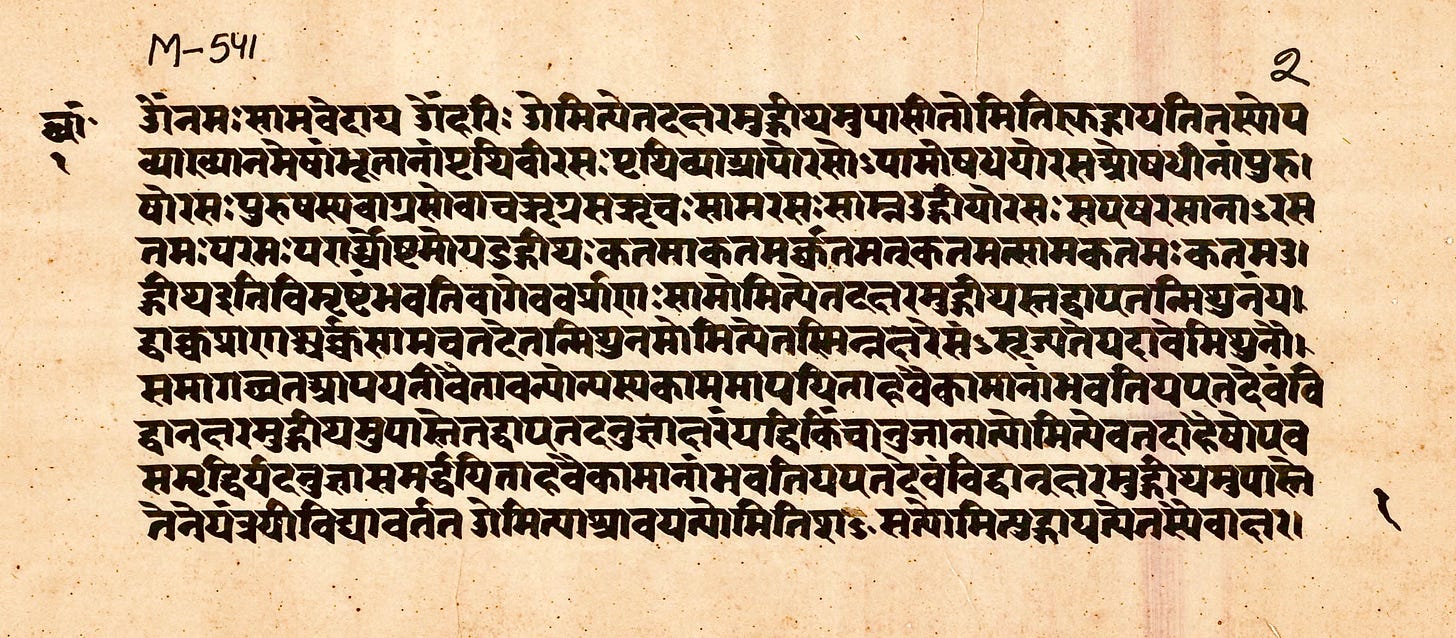 M-541
2
छां
१
ॐनमःसामवेदाय ॐहरिः ओमित्येतदक्षरमुद्गीथमुपासीतोमितिह्युद्गायतितस्योप
व्याख्यानमेषांभूतानांपृथिवीरसःपृथिव्याआपोरसोऽपामोषधयोरसओषधीनांपुरु।
षोरसःपुरुषस्यवाग्रसोवाचऋग्रसऋचःसामरसःसाम्नउद्गीथोरसःसएषरसानाऽरस
तमःपरमःपरार्द्ध्योष्टमोयउद्गीथःकतमाकतमर्क्कतमत्कतमत्सामकतमःकतमउ।
द्गीथइतिविमृष्टंभवतिवागेवर्क्प्राणःसामोमित्येतदक्षरमुद्गीथस्तद्वाएतन्मिथुनंय।
द्वाक्चप्राणश्चर्क्चसामचतदेतन्मिथुनमोमित्येतस्मिन्नक्षरेसंऽसृज्यतेयदावैमिथुनौ।
समागच्छतआपयतोवैतावन्योन्यस्यकाममापयिताहवैकामानांभवतियएतदेवंवि
द्वानक्षरमुद्गीथमुपास्तेतद्वाएतदनुज्ञाक्षरंयद्धिकिंचानुजानात्योमित्येवतदाहैषोएव
समृद्धिर्यदनुज्ञासमर्द्धयिताहवैकामानांभवतियएतदेवंविद्वानक्षरमुद्गीथमुपास्ते
तेनेयंत्रयीविद्यावर्तत ओमित्याश्रावयत्योमितिशऽ सत्योमित्युद्गायत्येतस्यैवाक्षर।
१